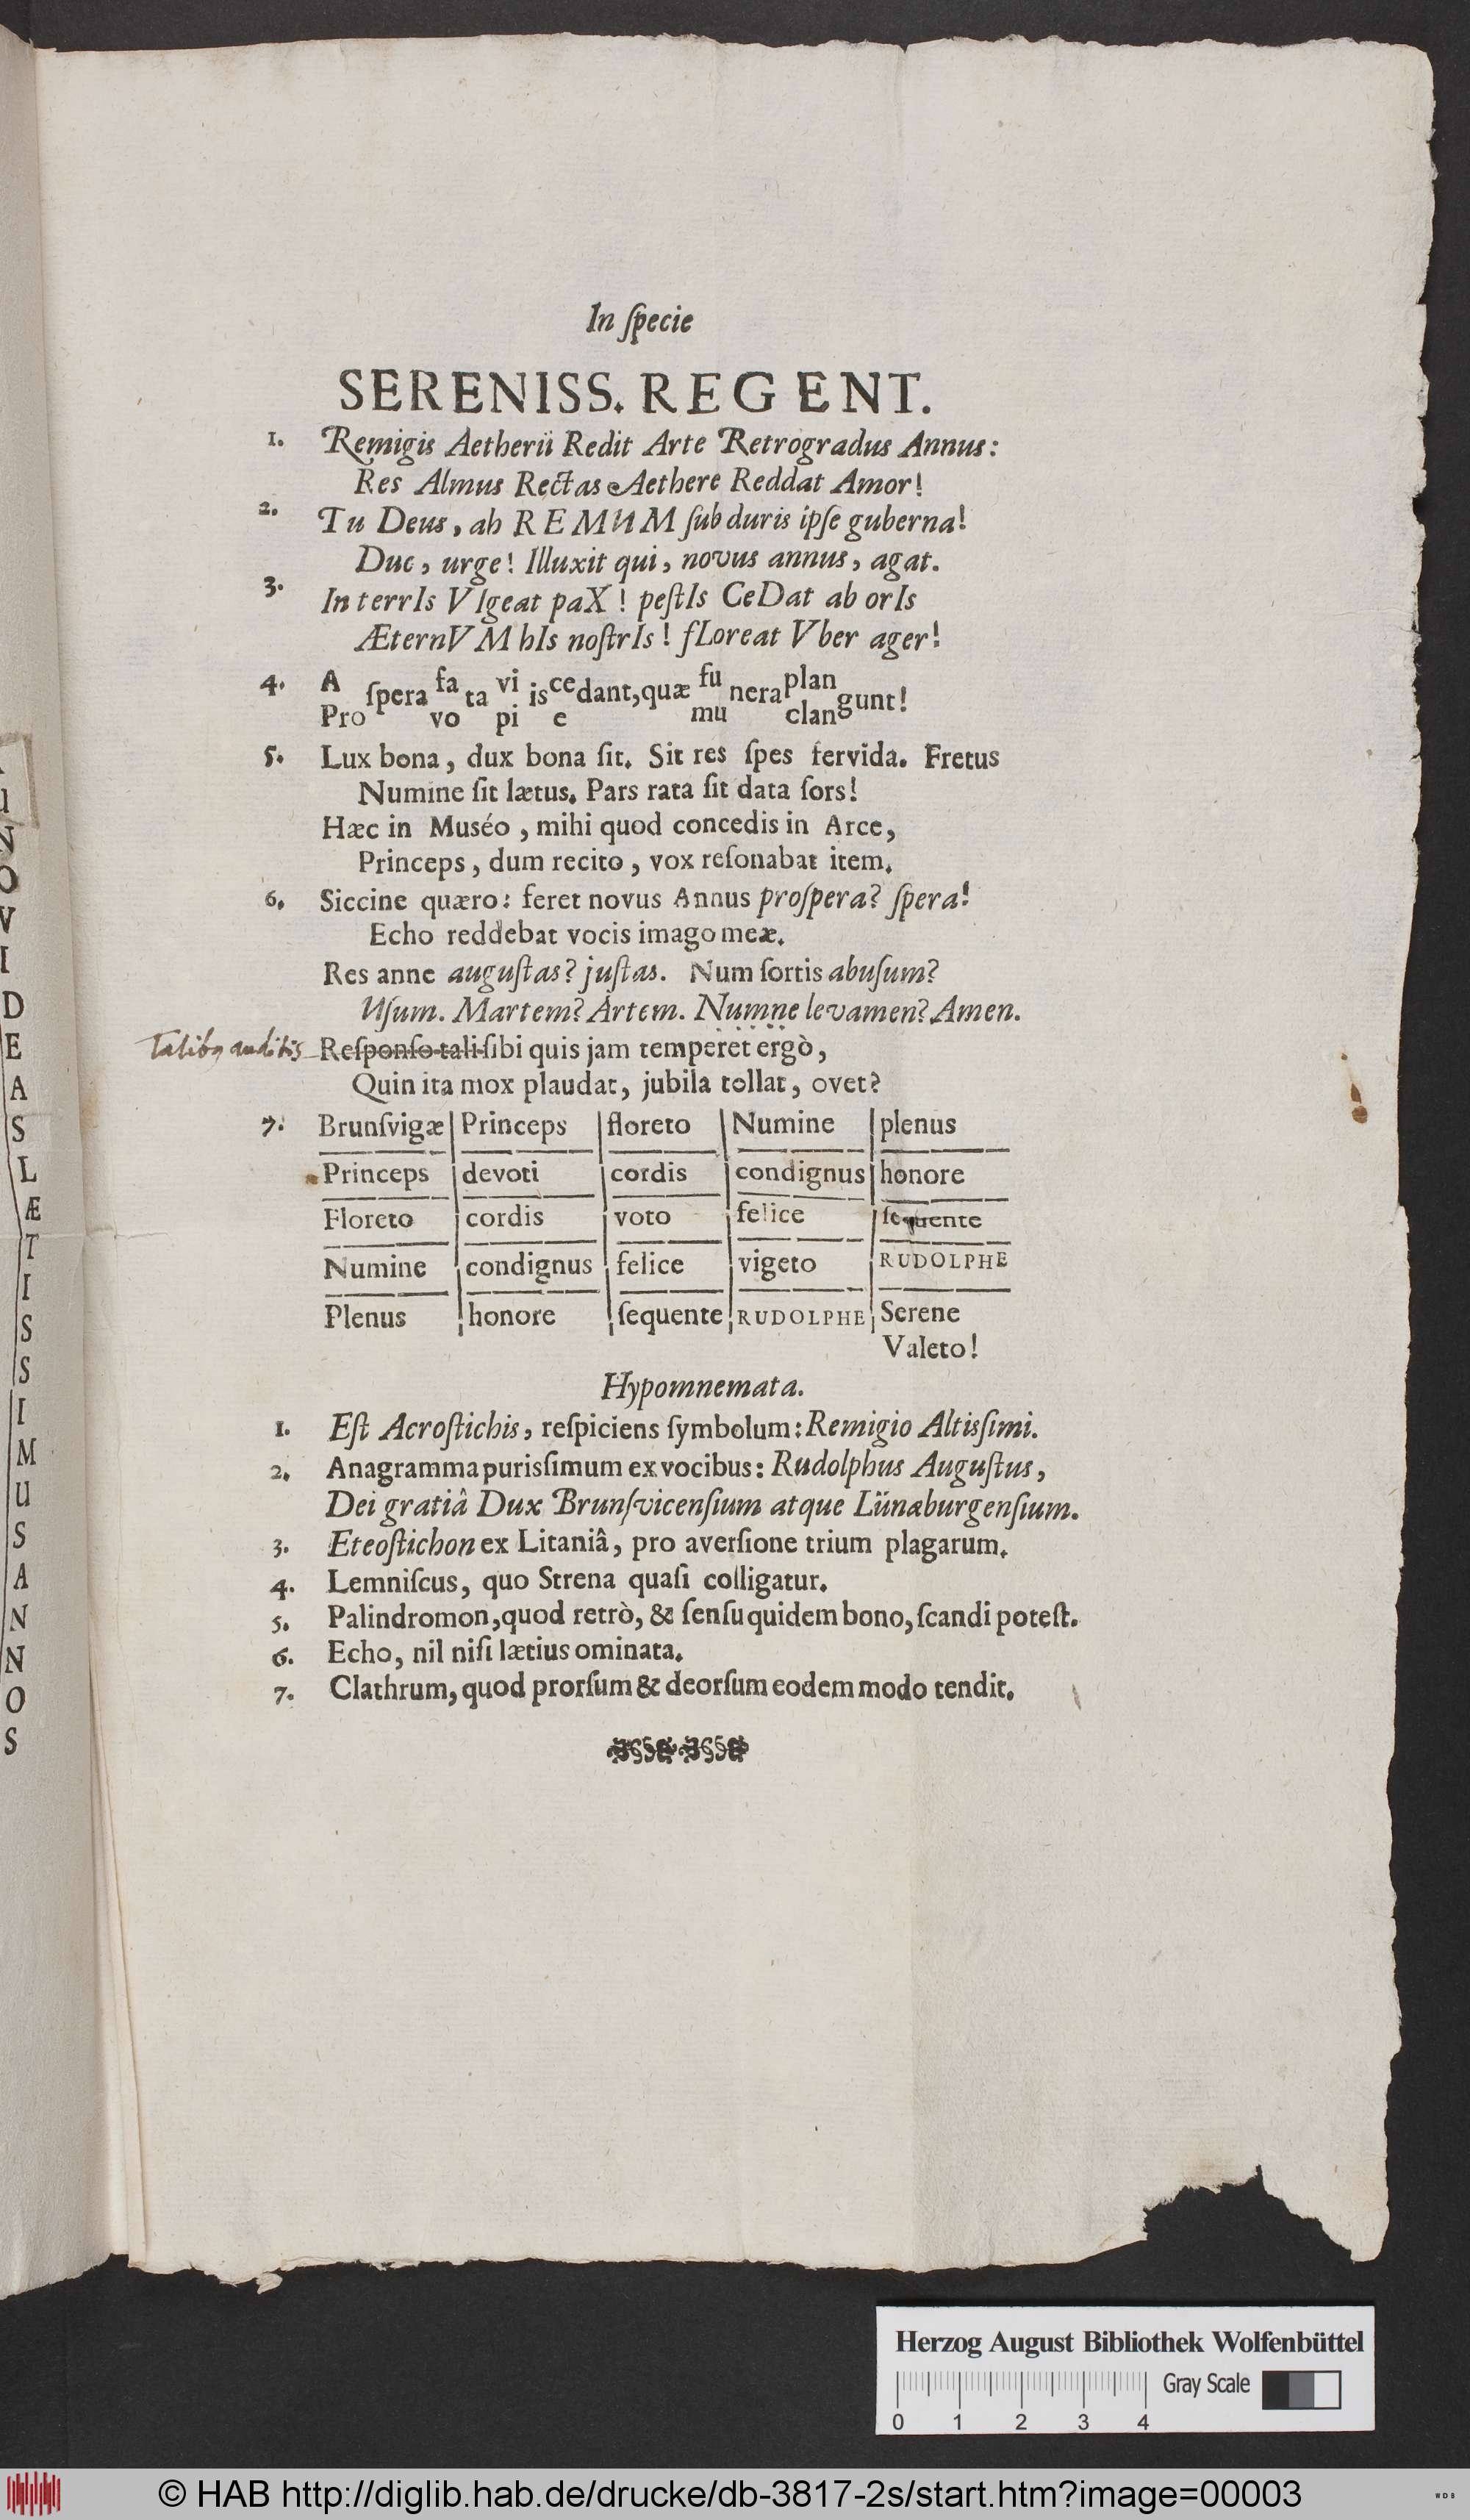 In ſpecie
SERENISS. REGENT.
1. Remigis Aetherii Redit Arte Retrogradus Annus:
Res Almus Rectas Aethere Reddat Amor!
2. Tu Deus, ah REMUM ſub duris ipſe guberna!
Duc, urge! Illuxit qui, novus annus, agat.
3. In terrIs VIgeat paX! peſtIs CeDat ab orIs
ÆternVM hIs noſtrIs! fLoreat Vber ager!
4. A fa vi ce fu plan
ſpera ta is dant, quæ nera gunt!
Pro vo pi e mu clan
5. Lux bona, dux bona ſit. Sit res ſpes fervida. Fretus
Numine ſit lætus. Pars rata ſit data ſors!
Hæc in Muséo, mihi quod concedis in Arce,
Princeps, dum recito, vox reſonabat item.
6. Siccine quæro: feret novus Annus proſpera? ſpera!
Echo reddebat vocis imago meæ.
Res anne auguſtas? juſtas. Num ſortis abuſum?
Uſum. Martem? Artem. Numne levamen? Amen.
Talibꝰ auditis Reſponſo tali ſibi quis jam temperet ergò,
Quin ita mox plaudat, jubila tollat, ovet?
7. Brunſvigæ Princeps floreto Numine plenus
Princeps devoti cordis condignus honore
Floreto cordis voto felice ſequente
Numine condignus felice vigeto RUDOLPHE
Plenus honore ſequente RUDOLPHE Serene
Valeto!
Hypomnemata.
1. Eſt Acroſtichis, reſpiciens ſymbolum: Remigio Altisſimi.
2. Anagramma purisſimum ex vocibus: Rudolphus Auguſtus,
Dei gratiâ Dux Brunſvicenſium atque Lünæburgenſium.
3. Eteoſtichon ex Litaniâ, pro averſione trium plagarum.
4. Lemniſcus, quo Strena quaſi colligatur.
5. Palindromon, quod retrò, & ſenſu quidem bono, ſcandi poteſt.
6. Echo, nil niſi lætius ominata.
7. Clathrum, quod prorſum & deorſum eodem modo tendit.
U
N
O
V
I
D
E
A
S
L
Æ
T
I
S
S
I
M
U
S
A
N
N
O
S
Herzog August Bibliothek Wolfenbüttel
Gray Scale
0 1 2 3 4
© HAB http://diglib.hab.de/drucke/db-3817-2s/start.htm?image=00003
WDB